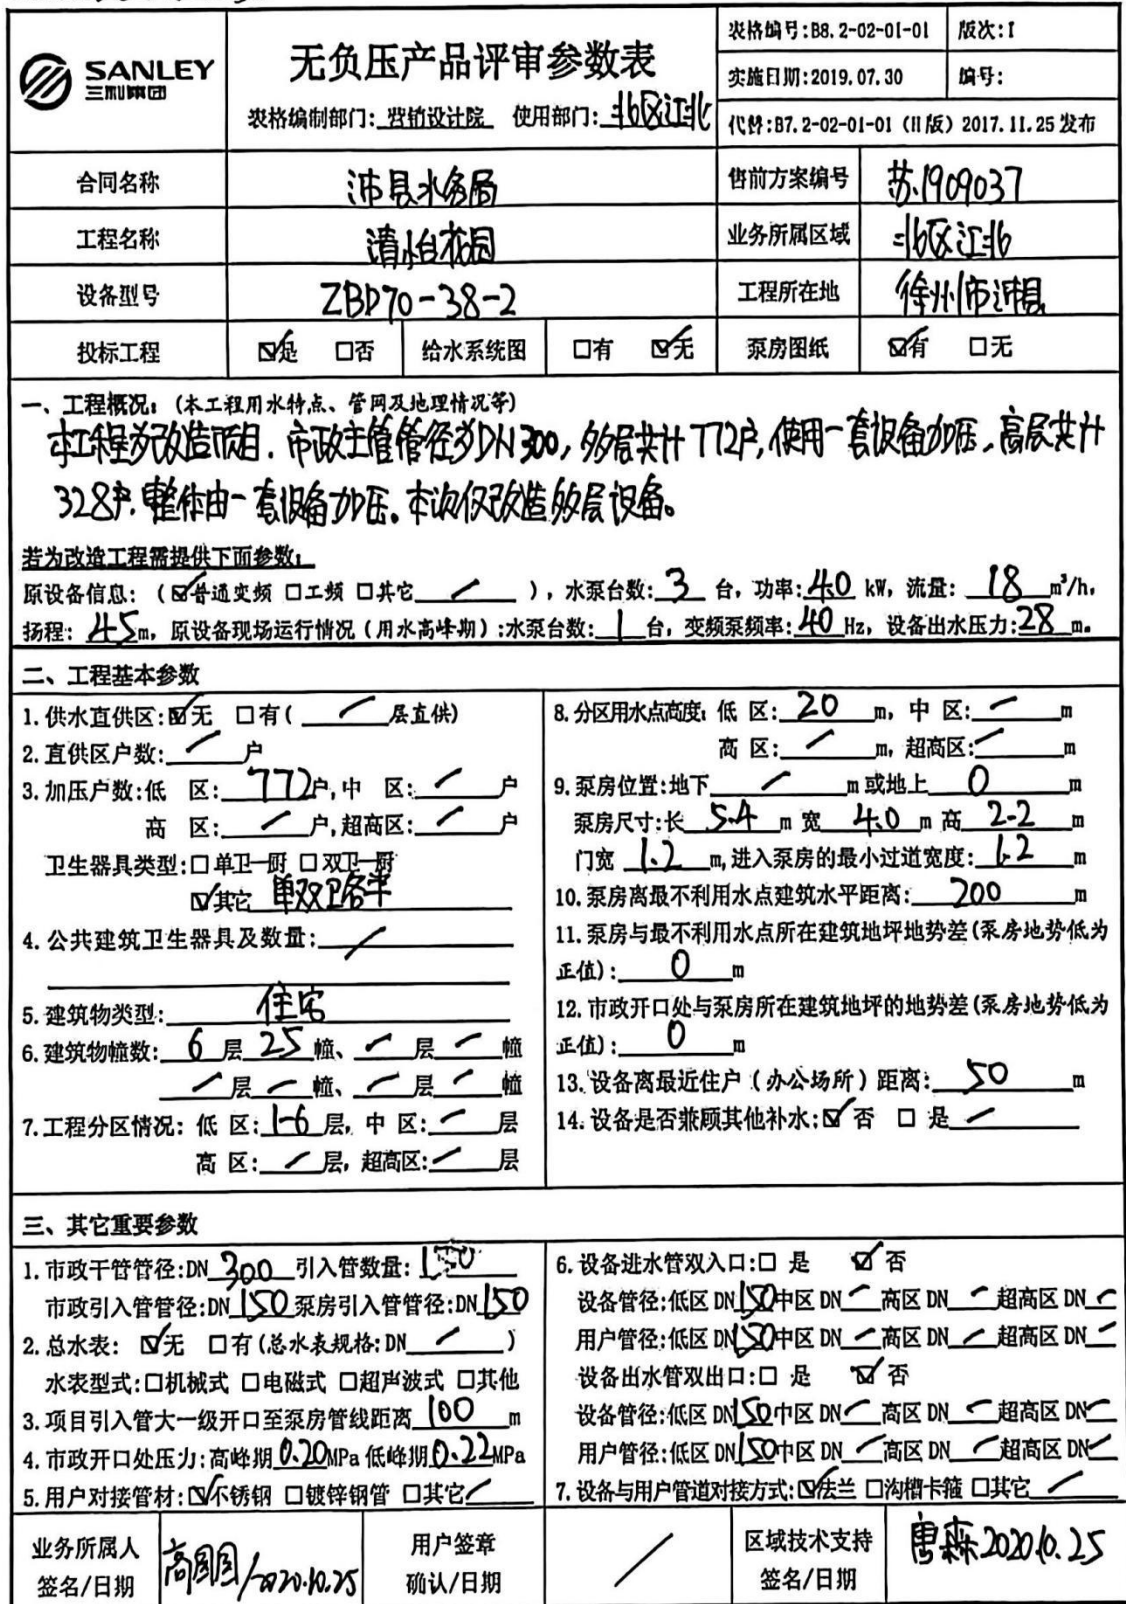 SANLEY
三利集团
无负压产品评审参数表
表格编制部门:营销设计院 使用部门:北区江北
表格编号:B8.2-02-01-01 版次:I
实施日期:2019.07.30 编号:
代替:B7.2-02-01-01 (II版) 2017.11.25发布
合同名称 沛县水务局 售前方案编号 苏.1909037
工程名称 清怡花园 业务所属区域 北区江北
设备型号 ZBD70-38-2 工程所在地 徐州市沛县
投标工程 ☑是 □否 给水系统图 □有 ☑无 泵房图纸 ☑有 □无
一、工程概况:(本工程用水特点、管网及地理情况等)
本工程为改造项目.市政主管管径为DN300,多层共计772户,使用一套设备加压,高层共计
328户.整体由一套设备加压。本次仅改造多层设备。
若为改造工程需提供下面参数:
原设备信息:(☑普通变频 □工频 □其它 / ),水泵台数:3 台,功率:4.0 kW,流量: 18 m³/h,
扬程:45m,原设备现场运行情况(用水高峰期):水泵台数:1台,变频泵频率:40 Hz,设备出水压力:28 m。
二、工程基本参数
1.供水直供区:☑无 □有( / 层直供)
2.直供区户数: / 户
3.加压户数:低 区:772户,中 区: / 户
高 区: / 户,超高区: / 户
卫生器具类型:□单卫一厨 □双卫一厨
☑其它 单双卫各半
4.公共建筑卫生器具及数量: /
5.建筑物类型: 住宅
6.建筑物幢数: 6 层 25 幢、 / 层 / 幢
/ 层 / 幢、 / 层 / 幢
7.工程分区情况:低 区:1-6 层,中 区: / 层
高 区: / 层,超高区: / 层
8.分区用水点高度:低 区: 20 m,中 区: / m
高 区: / m,超高区: / m
9.泵房位置:地下 / m或地上 0 m
泵房尺寸:长 5.4 m 宽 4.0 m 高 2.2 m
门宽 1.2 m,进入泵房的最小过道宽度: 1.2 m
10.泵房离最不利用水点建筑水平距离: 200 m
11.泵房与最不利用水点所在建筑地坪地势差(泵房地势低为
正值): 0 m
12.市政开口处与泵房所在建筑地坪的地势差(泵房地势低为
正值): 0 m
13.设备离最近住户(办公场所)距离: 50 m
14.设备是否兼顾其他补水:☑ 否 □ 是 /
三、其它重要参数
1.市政干管管径:DN 300 引入管数量:
市政引入管管径:DN 150 泵房引入管管径:DN 150
2.总水表: ☑无 □有(总水表规格:DN / )
水表型式:□机械式 □电磁式 □超声波式 □其他
3.项目引入管大一级开口至泵房管线距离 100 m
4.市政开口处压力:高峰期 0.20MPa 低峰期 0.22MPa
5.用户对接管材:☑不锈钢 □镀锌钢管 □其它 /
6.设备进水管双入口:□ 是 ☑ 否
设备管径:低区 DN150中区 DN / 高区 DN / 超高区 DN /
用户管径:低区 DN150中区 DN / 高区 DN / 超高区 DN /
设备出水管双出口:□ 是 ☑ 否
设备管径:低区 DN150中区 DN / 高区 DN / 超高区 DN /
用户管径:低区 DN150中区 DN / 高区 DN / 超高区 DN /
7.设备与用户管道对接方式:☑法兰 □沟槽卡箍 □其它 /
业务所属人 签名/日期 高圆圆/2020.10.25 用户签章 确认/日期 / 区域技术支持 签名/日期 唐森2020.10.25